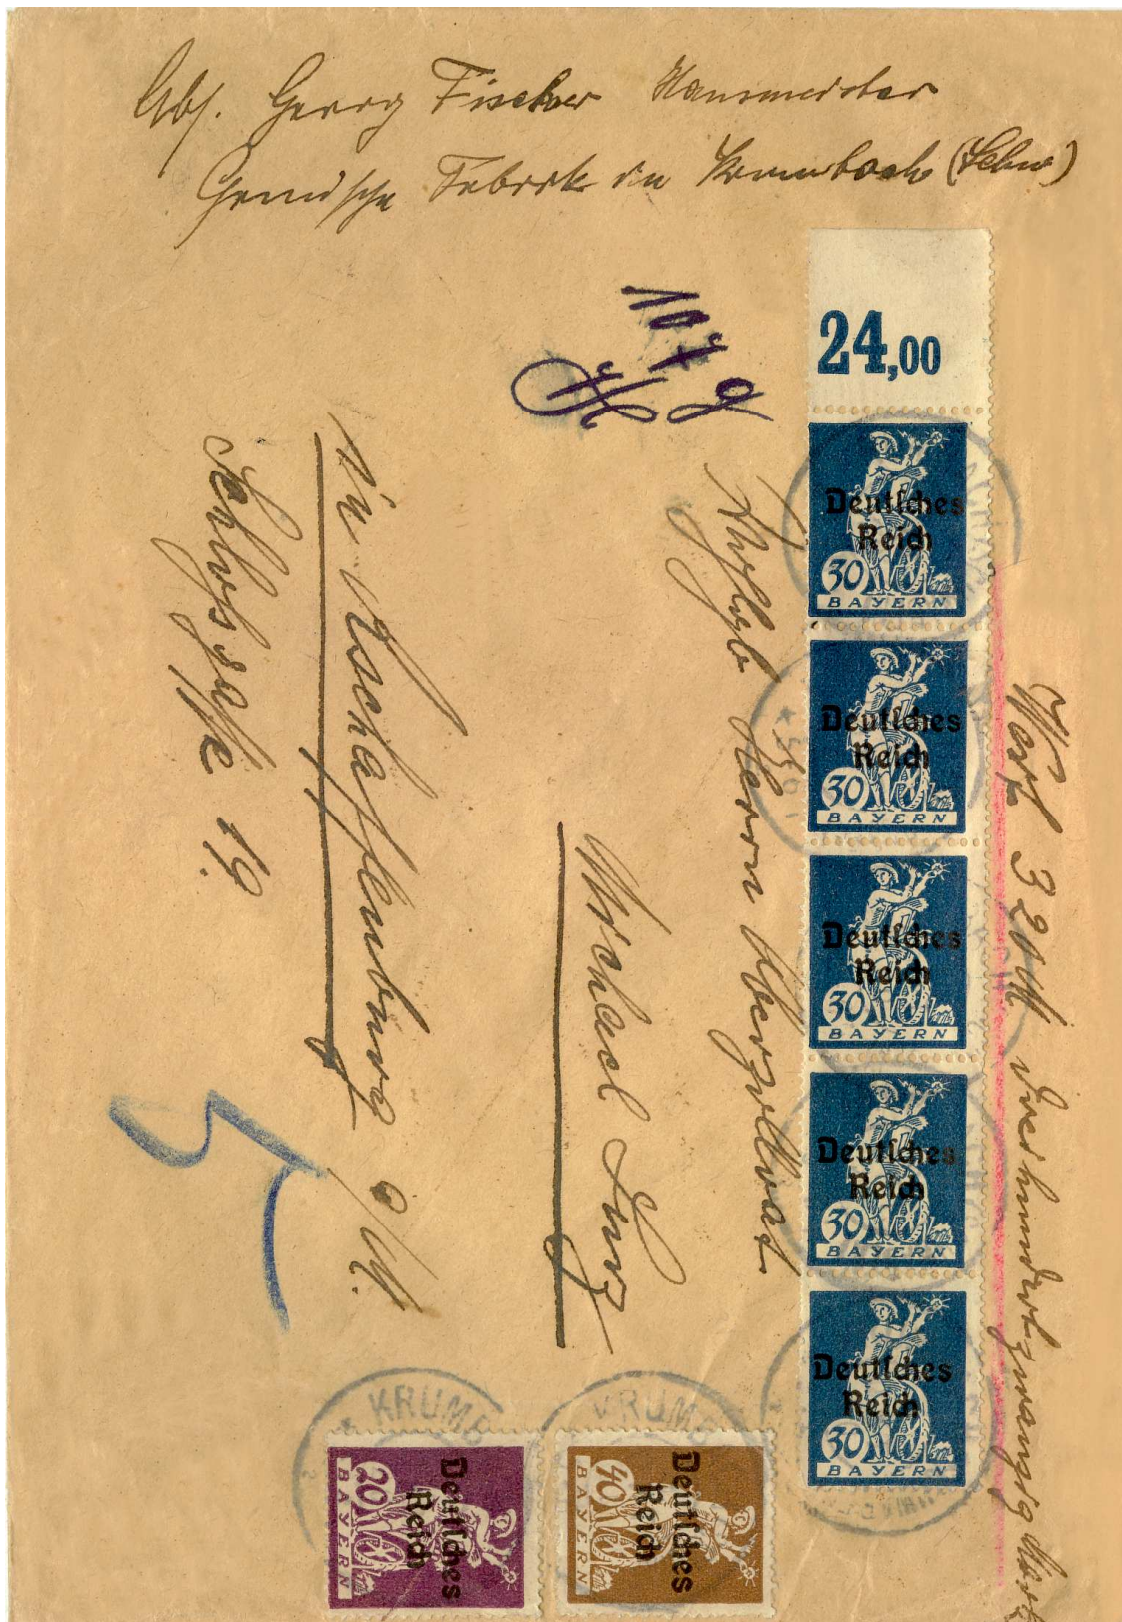 Abs. Georg Fischer Hausmeister
Chemische Fabrik in Krumbach (Schw)
24,00
Deutsches
Reich
30
BAYERN
Deutsches
Reich
30
BAYERN
Deutsches
Reich
30
BAYERN
Deutsches
Reich
30
BAYERN
Deutsches
Reich
30
BAYERN
Wert 320 M dreihundertzwanzig Mark
107 g
Herrn Oberzollrat
Michael Lurz
in Aschaffenburg a/M.
Schlossgasse 19.
KRUMB
KRUMB
Deutsches
Reich
40
BAYERN
Deutsches
Reich
20
BAYERN